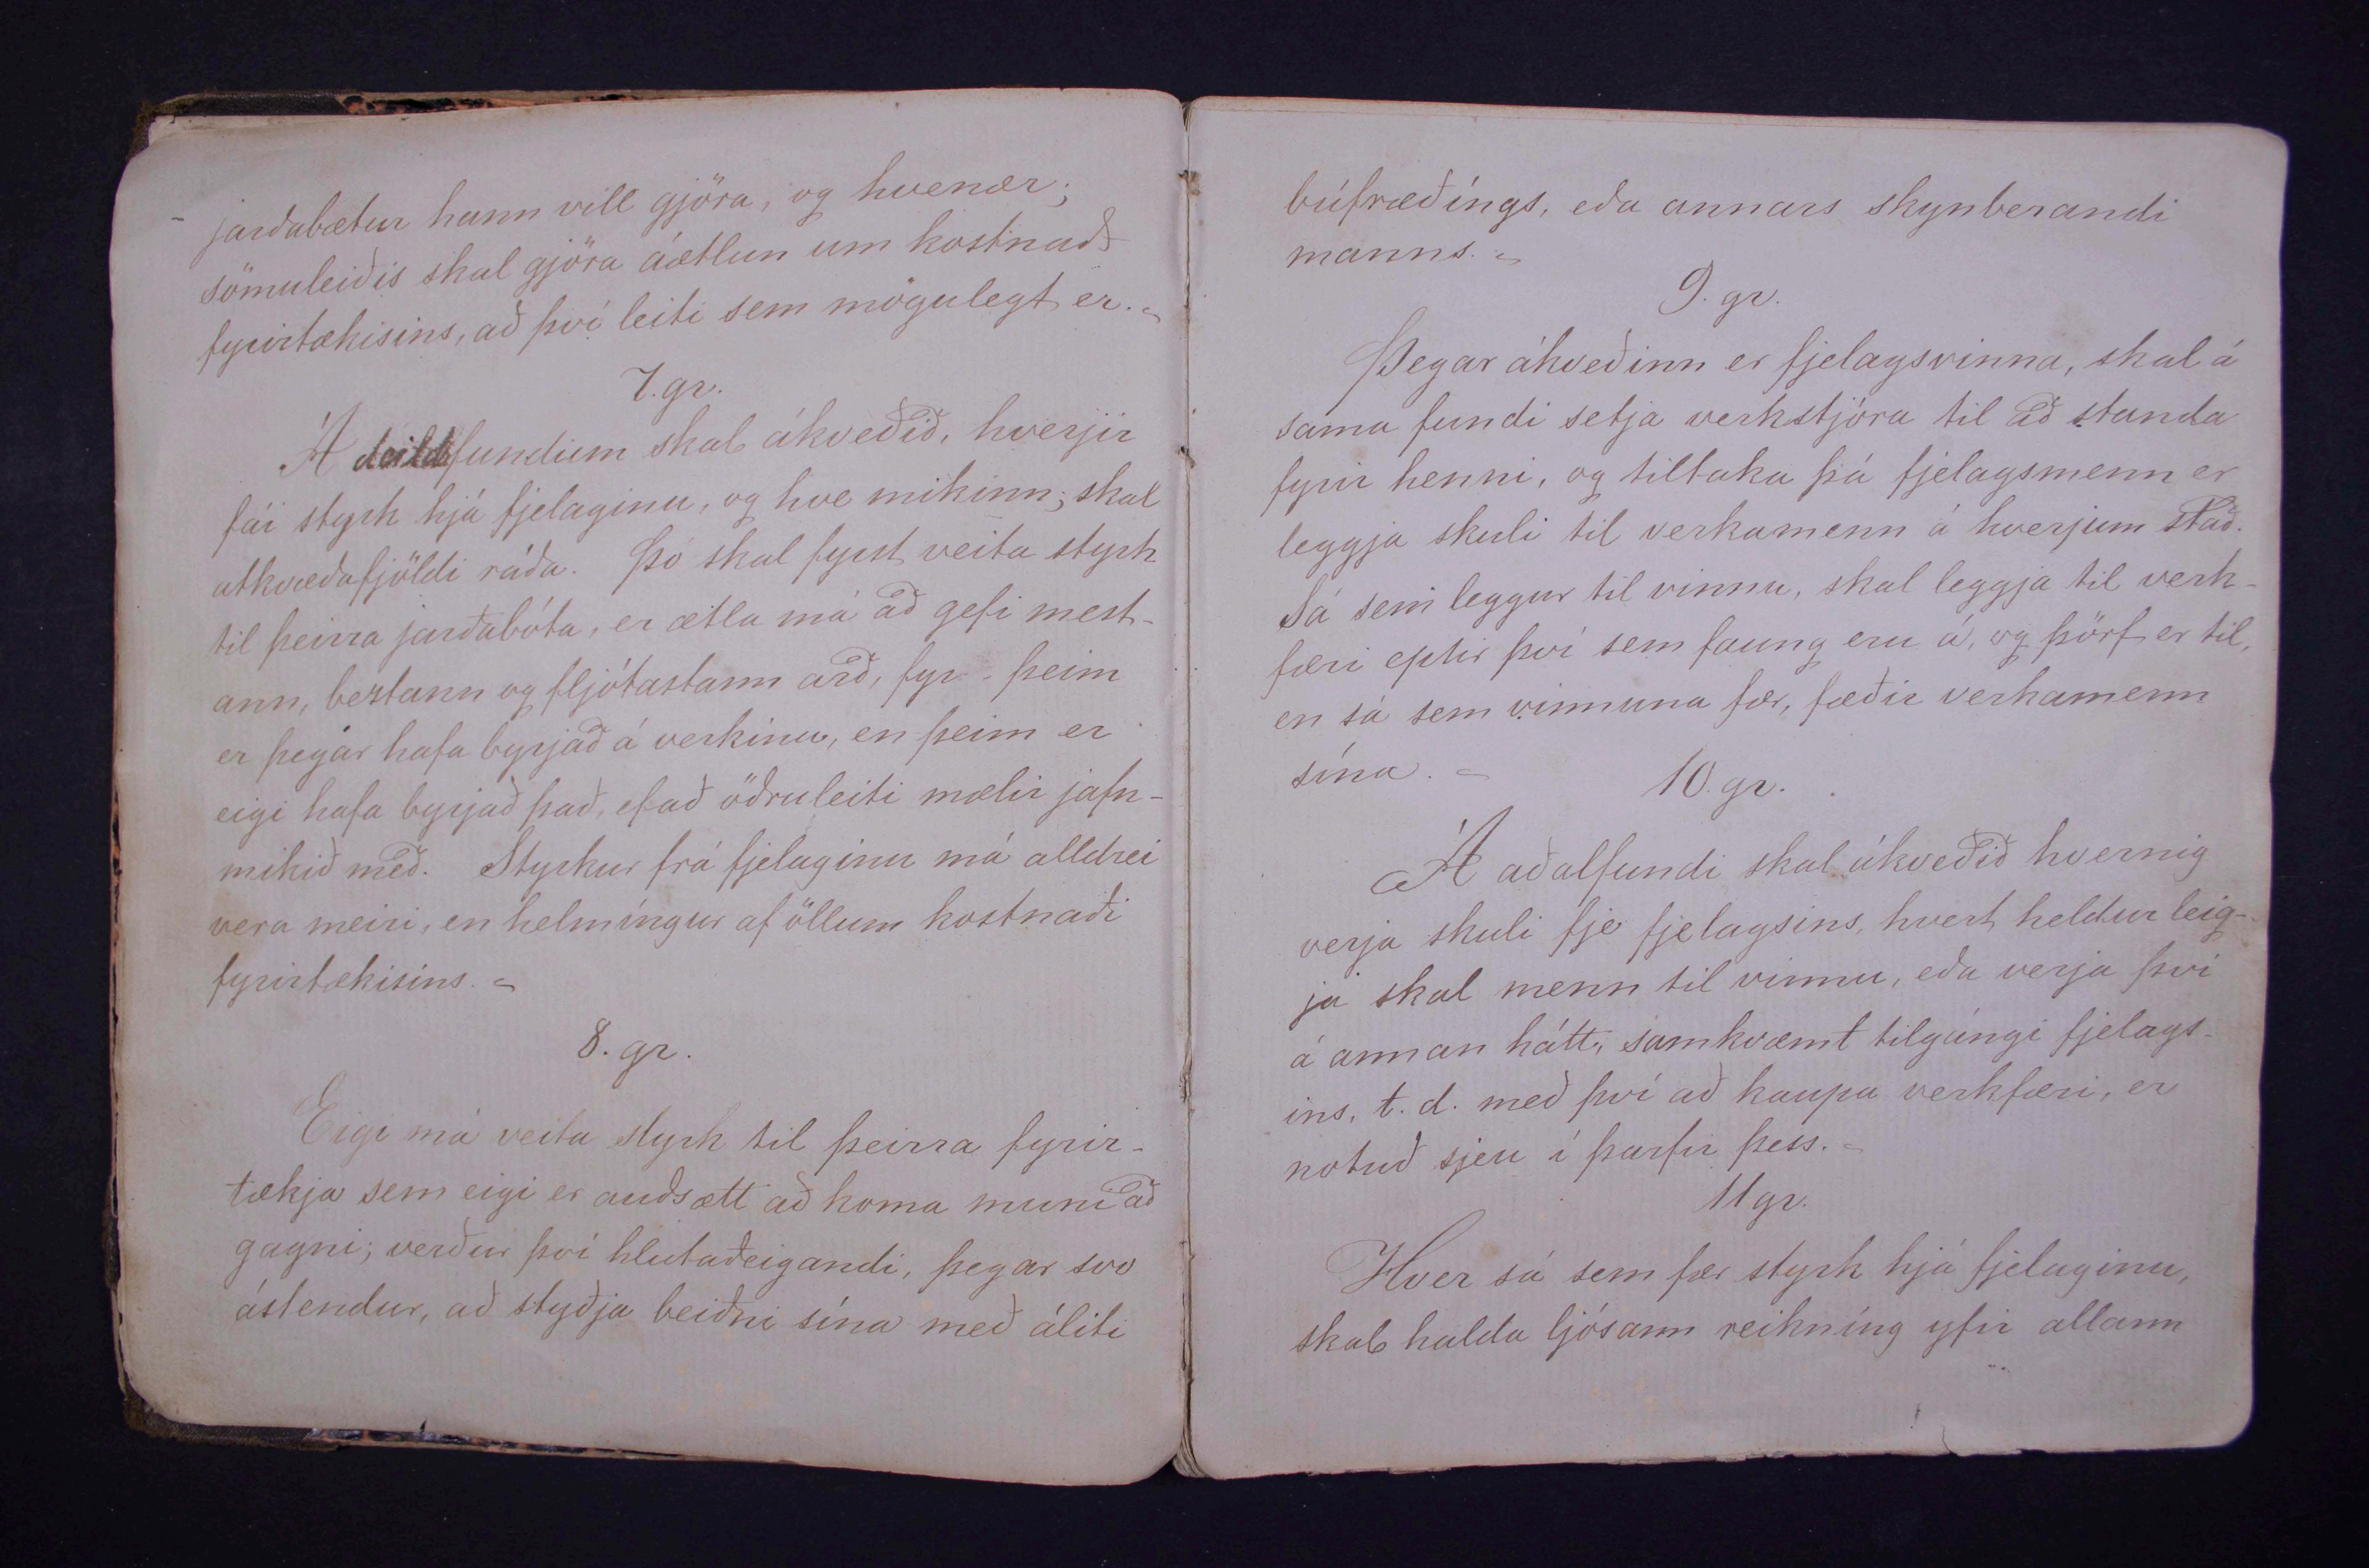 jarðabætur hann vill gjöra, og hvenær;
sömuleiðis skal gjöra áætlun um kostnað
fyrirtækisins, að því leiti sem mögulegt er. -
7. gr.
Á deildfundum skal ákveðið, hverjir
fái styrk hjá fjelaginu, og hve mikinn; skal
atkvæðafjöldi ráða. Þó skal fyrst veita styrk
til þeirra jarðabóta, er ætla má að gefi mest-
ann, beztann og fljótastann arð, fyr - þeim
er þegar hafa byrjað á verkinu, en þeim er
eigi hafa byrjað það, ef að öðruleiti mælir jafn-
mikið með. Styrkur frá fjelaginu má alldrei
vera meiri, en helmíngur af öllum kostnaði
fyrirtækisins. -
8. gr.
Eigi má veita styrk til þeirra fyrir-
tækja sem eigi er auðsætt að koma muni að
gagni; verður því hlutaðeigandi, þegar svo
ástendur, að styðja beiðni sína með áliti
búfræðíngs, eða annars skynberandi
manns. -
9. gr.
Þegar ákveðinn er fjelagsvinna, skal á
sama fundi setja verkstjóra til að standa
fyrir henni, og tiltaka þá fjelagsmenn er
leggja skuli til verkamenn á hverjum stað.
Sá sem leggur til vinnu, skal leggja til verk-
færi eptir því sem faung eru á, og þörf er til,
en sá sem vinnuna fær, fæðir verkamenn
sína. -
10. gr.
Á aðalfundi skal ákveðið hvernig
verja skuli fje fjelagsins, hvert heldur leig-
ja skal menn til vinnu, eða verja því
á annan hátt, samkvæmt tilgángi fjelags-
ins, t. d. með því að kaupa verkfæri, er
notuð sjeu í þarfir þess. -
11 gr.
Hver sá sem fær styrk hjá fjelaginu,
skal halda ljósann reikníng yfir allann